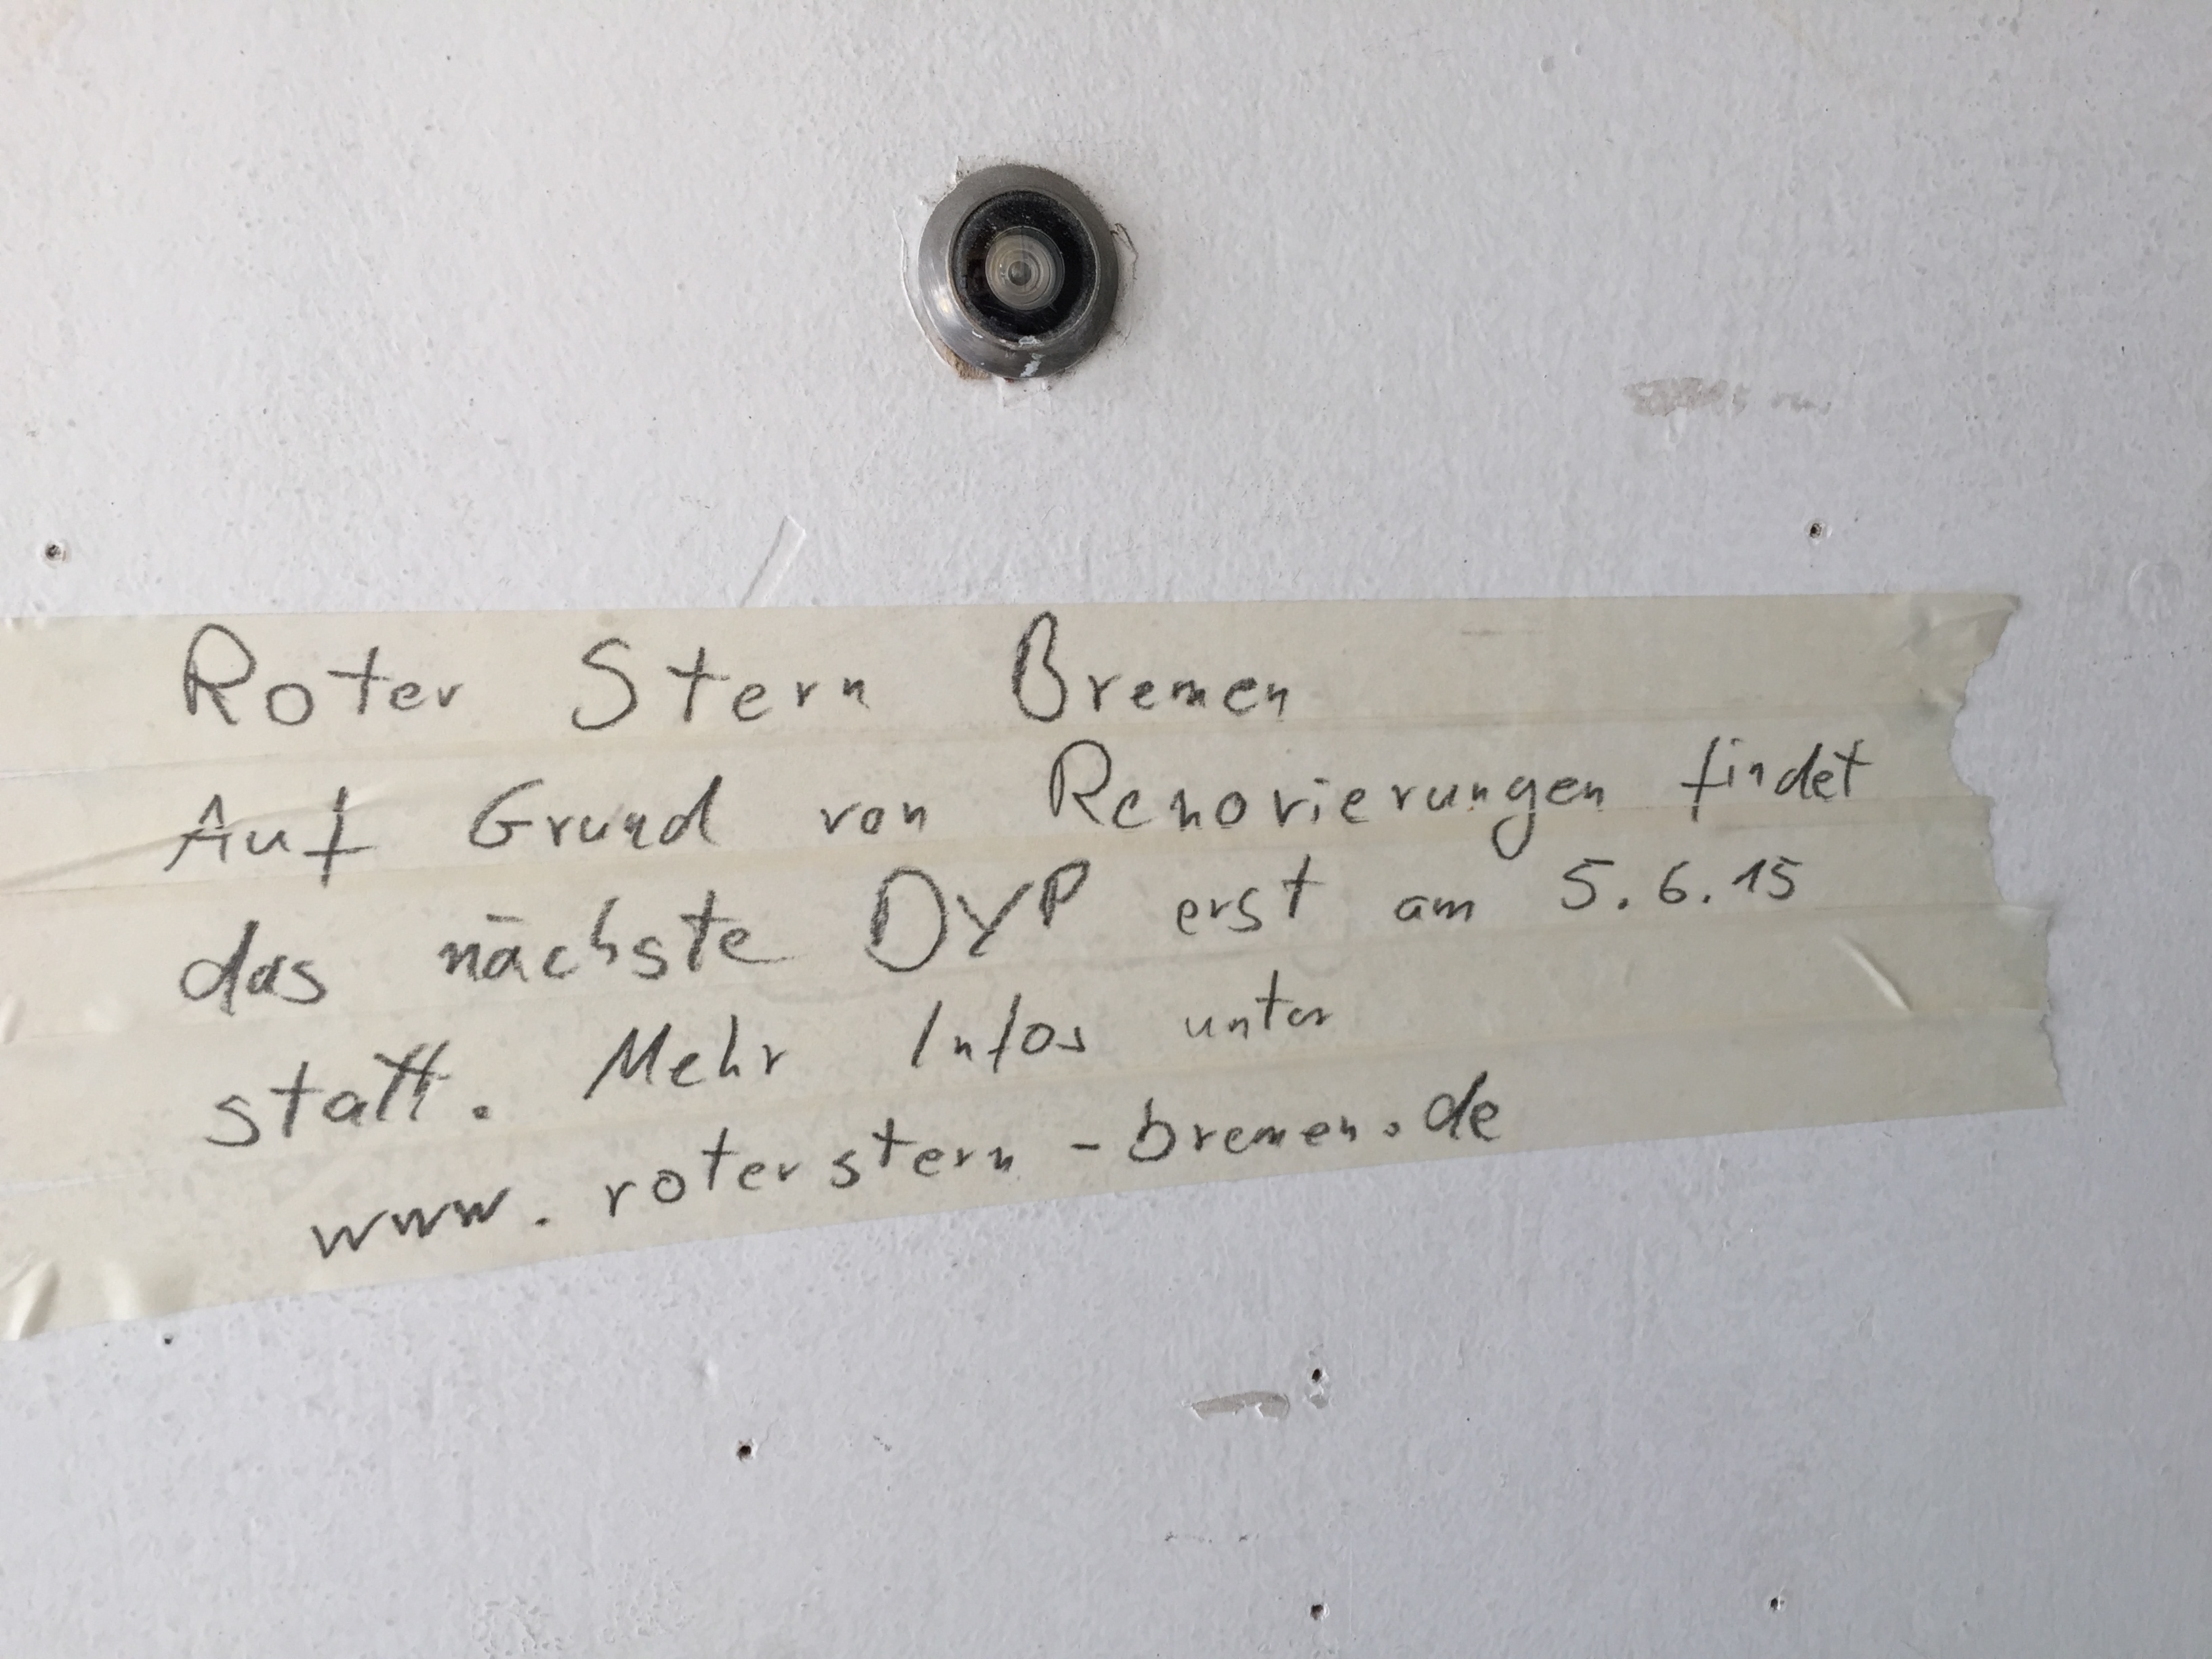 Roter Stern Bremen
Auf Grund von Renovierungen findet
das nächste DYP erst am 5.6.15
statt. Mehr Infos unter
www.roterstern-bremen.de